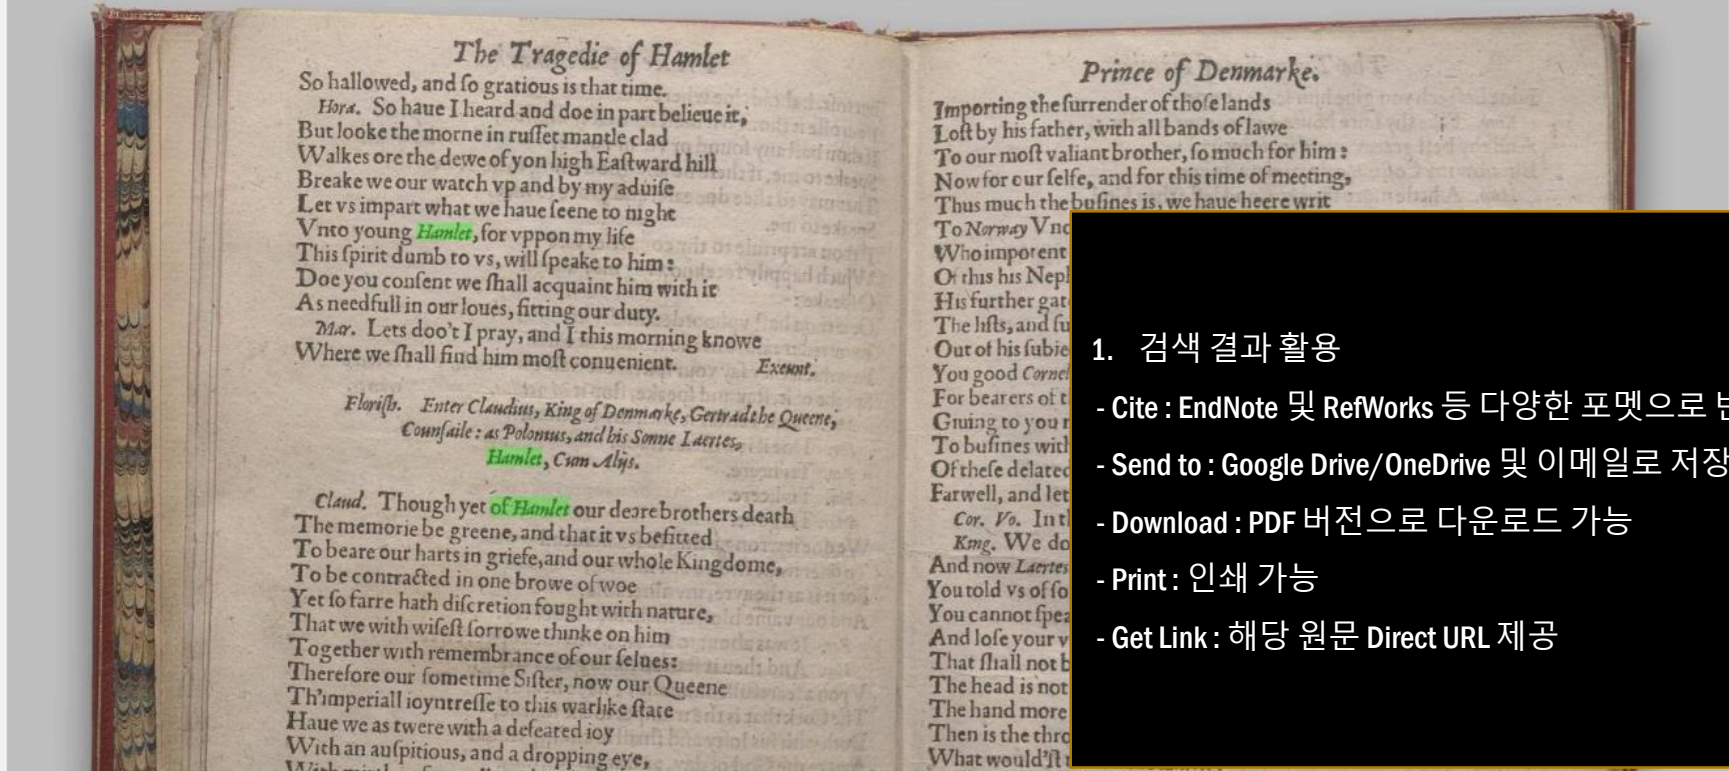 The Tragedie of Hamlet
So hallowed, and ſo gratious is that time.
Hora. So haue I heard and doe in part belieue it,
But looke the morne in ruſſet mantle clad
Walkes ore the dewe of yon high Eaſtward hill
Breake we our watch vp and by my aduiſe
Let vs impart what we haue ſeene to night
Vnto young Hamlet, for vppon my life
This ſpirit dumb to vs, will ſpeake to him:
Doe you conſent we ſhall acquaint him with it
As needfull in our loues, fitting our duty.
Mar. Lets doo't I pray, and I this morning knowe
Where we ſhall find him moſt conuenient. Exeunt.
Floriſh. Enter Claudius, King of Denmarke, Gertradthe Queene,
Counſaile: as Polonius, and his Sonne Laertes,
Hamlet, Cum Alijs.
Claud. Though yet of Hamlet our deare brothers death
The memorie be greene, and that it vs befitted
To beare our harts in griefe, and our whole Kingdome,
To be contracted in one browe of woe
Yet ſo farre hath diſcretion fought with nature,
That we with wiſeſt ſorrowe thinke on him
Together with remembrance of our ſelues:
Therefore our ſometime Siſter, now our Queene
Th'imperiall ioyntreſſe to this warlike ſtate
Haue we as twere with a defeated ioy
With an auſpitious, and a dropping eye,
Prince of Denmarke.
Importing the ſurrender of thoſe lands
Loſt by his father, with all bands of lawe
To our moſt valiant brother, ſo much for him:
Now for our ſelfe, and for this time of meeting,
Thus much the buſines is, we haue heere writ
To Norway
Who imporent
Of this his
His further
The liſts, and
Out of his
You good
For bearers of
Giuing to you
To buſines
Of theſe delated
Farwell, and let
Cor. Vo. In
King. We do
And now Laertes
You told vs of
You cannot
And loſe your
That ſhall not
The head is not
The hand more
Then is the
What would'ſt
1. 검색 결과 활용
- Cite : EndNote 및 RefWorks 등 다양한 포멧으로
- Send to : Google Drive/OneDrive 및 이메일로 저장
- Download : PDF 버전으로 다운로드 가능
- Print : 인쇄 가능
- Get Link : 해당 원문 Direct URL 제공